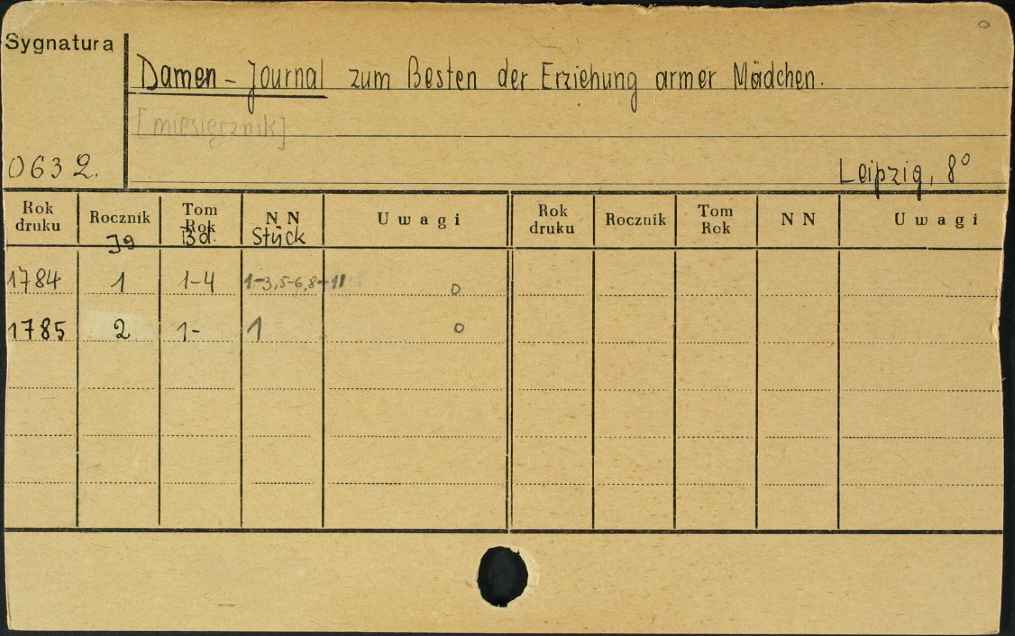 Sygnatura
Damen-Journal zum Besten der Erziehung armer Mädchen.
[miesięcznik]
0632.
Leipzig, 8°
Rok druku Rocznik Tom Rok NN Uwagi Rok druku Rocznik Tom Rok NN Uwagi
Jg Bd. Stück
1784 1 1-4 1-3,5-6,8-11 o
1785 2 1- 1 o